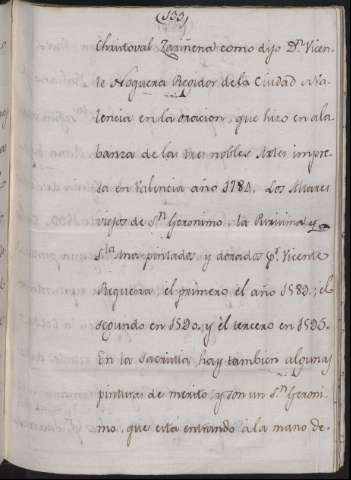 133
Christoval Zariñena como dijo Dⁿ Vicen-
te Noguera Regidor de la Ciudad Va-
lencia en la oracion, que hizo en ala-
banza de las tres nobles Artes impre-
sa en Valencia año 1784. Los Altares
viejos de Sⁿ Geronimo, la Purisima y
Sᵗᵃ Ana pintados y dorados pʳ Vicente
Requena el primero el año 1589; el
segundo en 1590. y el tercero en 1595.
En la Sacristia hay tambien algunas
pinturas de merito, y son un Sⁿ Geroni-
mo, que está entrando á la mano de-